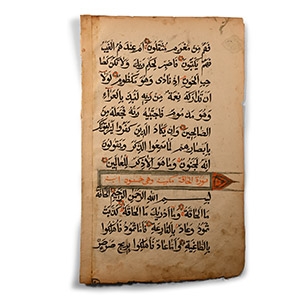 فهم من مغرم مثقلون ام عندهم الغيب
فهم يكتبون فاصبر لحكم ربك ولا تكن كصا
حب الحوت اذ نادى وهو مكظوم لولا
ان تداركه نعمة من ربه لنبذ بالعراء
وهو مذموم فاجتبيه ربه فجعله من
الصالحين وان يكاد الذين كفروا ليزلقونك
بابصارهم لما سمعوا الذكر ويقولون
انه لمجنون وما هو الا ذكر للعالمين
سورة الحاقة مكية وهي خمسون اية
بسم الله الرحمن الرحيم الحاقة
ما الحاقة وما ادريك ما الحاقة كذبت
ثمود وعاد بالقارعة فاما ثمود فاهلكوا
بالطاغية واما عاد فاهلكوا بريح صرصر